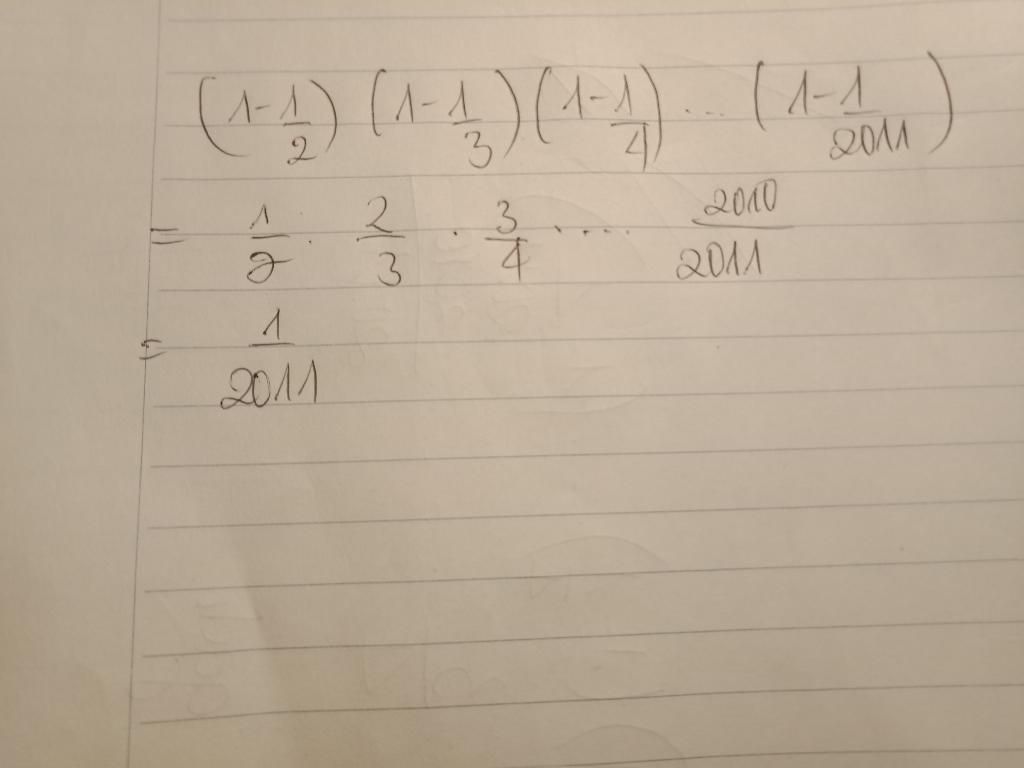 (1 - 1/2) (1 - 1/3) (1 - 1/4) ... (1 - 1/2011)
= 1/2 · 2/3 · 3/4 · .... 2010/2011
= 1/2011